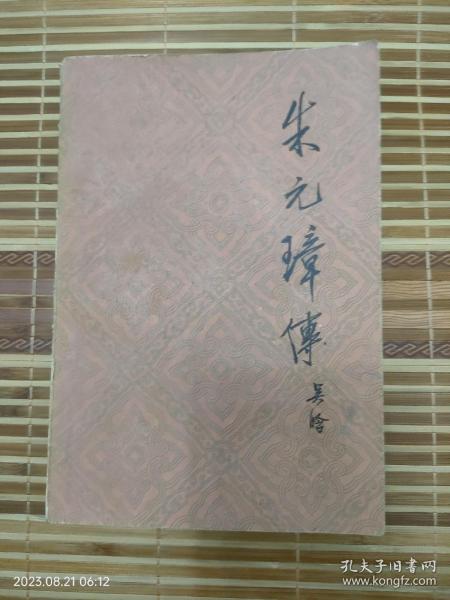 朱元璋傳
吴晗
2023.08.21 06:12
孔夫子旧书网
www.kongfz.com